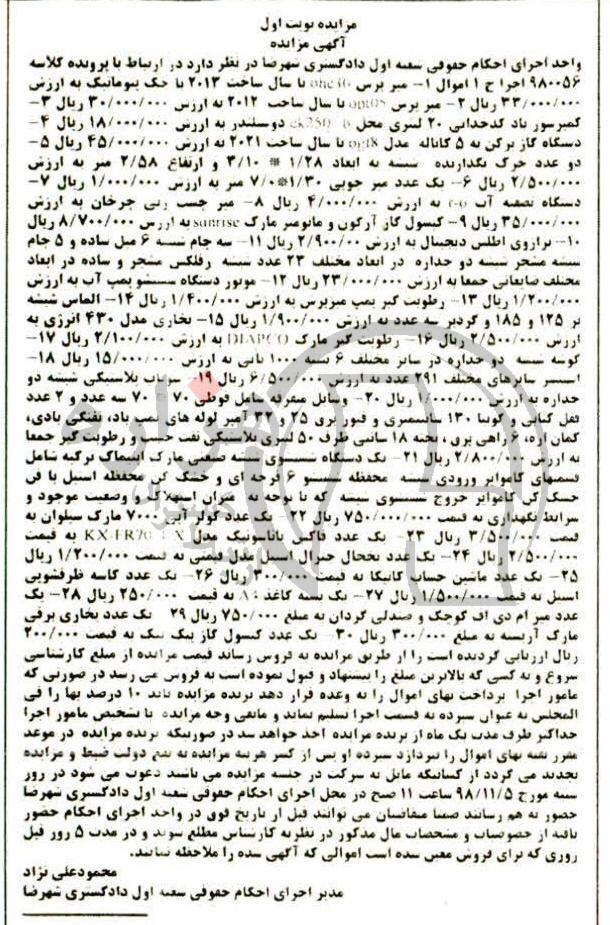 مزایده نوبت اول
آگهی مزایده
واحد اجرای احکام حقوقی شعبه اول دادگستری شهرضا در نظر دارد در ارتباط با پرونده کلاسه
۹۸۰۰۵۶ اجرا ح ۱ اموال ۱- میز پرس با سال ساخت ۲۰۱۳ با جک پنوماتیک به ارزش
۳۳/۰۰۰/۰۰۰ ریال ۲- میز پرس با سال ساخت ۲۰۱۲ به ارزش ۳۰/۰۰۰/۰۰۰ ریال ۳-
کمپرسور باد کدخدایی ۲۰ لیتری مدل دوسیلندر به ارزش ۱۸/۰۰۰/۰۰۰ ریال ۴-
دستگاه گاز پرکن به ۵ کاناله مدل با سال ساخت ۲۰۲۱ به ارزش ۴۵/۰۰۰/۰۰۰ ریال ۵-
دو عدد خرک نگهدارنده شیشه به ابعاد ۱/۲۸ * ۳/۱۰ و ارتفاع ۲/۵۸ متر به ارزش
۲/۵۰۰/۰۰۰ ریال ۶- یک عدد میز چوبی ۱/۳۰*۷/۰ متر به ارزش ۱/۰۰۰/۰۰۰ ریال ۷-
دستگاه تصفیه آب به ارزش ۴/۰۰۰/۰۰۰ ریال ۸- میز چسب زنی چرخان به ارزش
۳۵/۰۰۰/۰۰۰ ریال ۹- کپسول گاز آرگون و مانومتر مارک sunrise به ارزش ۸/۷۰۰/۰۰۰ ریال
۱۰- ترازوی اطلس دیجیتال به ارزش ۲/۹۰۰/۰۰ ریال ۱۱- سه جام شیشه ۶ میل ساده و ۵ جام
شیشه مشجر شیشه دو جداره در ابعاد مختلف ۲۳ عدد شیشه رفلکس مشجر و ساده در ابعاد
مختلف ضایعاتی جمعا به ارزش ۲۳/۰۰۰/۰۰۰ ریال ۱۲- موتور دستگاه شستشو پمپ آب به ارزش
۱/۲۰۰/۰۰۰ ریال ۱۳- رطوبت گیر پمپ میزپرش به ارزش ۱/۴۰۰/۰۰۰ ریال ۱۴- الماس شیشه
بر ۱۲۵ و ۱۸۵ و گردبر سه عدد به ارزش ۱/۹۰۰/۰۰۰ ریال ۱۵- بخاری مدل ۴۳۰ انرژی به
ارزش ۲/۵۰۰/۰۰۰ ریال ۱۶- رطوبت گیر مارک DIAPCO به ارزش ۲/۱۰۰/۰۰۰ ریال ۱۷-
گوشه شیشه دو جداره در سایز مختلف ۶ بسته ۱۰۰۰ تایی به ارزش ۱۵/۰۰۰/۰۰۰ ریال ۱۸-
اسپیسر سایزهای مختلف ۲۹۱ عدد به ارزش ۶/۵۰۰/۰۰۰ ریال ۱۹- پلاستیکی شیشه دو
جداره به ارزش ۱/۰۰۰/۰۰۰ ریال ۲۰- وسایل متفرقه شامل قوطی ۷۰ ۷۰ سه عدد و ۲ عدد
قفل کتابی و گونیا ۱۳۰ سانتیمتری و فیوز برق ۲۵ و ۳۲ آمپر لوله های پمپ باد، تفنگی بادی،
کمان اره، ۶ راهی برق، تخته ۱۸ سانتی ظرف ۵۰ لیتری پلاستیکی نفت چسب و رطوبت گیر جمعا
به ارزش ۲/۸۰۰/۰۰۰ ریال ۲۱- یک دستگاه شستشوی شیشه صنعتی مارک ترکیه شامل
قسمتهای کاموایر ورودی شیشه محفظه شستشو ۶ فرچه ای و خشک کن محفظه استیل با فن
خشک کن کاموایر خروج شستشوی شیشه که با توجه به میزان استهلاک و وضعیت موجود و
شرایط نگهداری به قیمت ۷۵۰/۰۰۰/۰۰۰ ریال ۲۲- یک عدد کولر آبی ۷۰۰۰ مارک سیلوان به
قیمت ۳/۵۰۰/۰۰۰ ریال ۲۳- یک عدد فاکس پاناسونیک مدل به قیمت
۲/۵۰۰/۰۰۰ ریال ۲۴- یک عدد یخچال جنرال استیل مدل قدیمی به قیمت ۱/۲۰۰/۰۰۰ ریال
۲۵- یک عدد ماشین حساب کاتیگا به قیمت ۳۰۰/۰۰۰ ریال ۲۶- یک عدد کاسه ظرفشویی
استیل به قیمت ۱/۵۰۰/۰۰۰ ریال ۲۷- یک بسته کاغذ A4 به قیمت ۲۵۰/۰۰۰ ریال ۲۸- یک
عدد میز ام دی اف کوچک و صندلی گردان به مبلغ ۷۵۰/۰۰۰ ریال ۲۹- یک عدد بخاری برقی
مارک آریسته به مبلغ ۳۰۰/۰۰۰ ریال ۳۰- یک عدد کپسول گاز پیک نیک به قیمت ۲۰۰/۰۰۰
ریال ارزیابی گردیده است را از طریق مزایده به فروش رساند قیمت مزایده از مبلغ کارشناسی
شروع و به کسی که بالاترین مبلغ را پیشنهاد و قبول نموده است به فروش می رسد در صورتی که
مامور اجرا پرداخت بهای اموال را به وعده قرار دهد برنده مزایده باید ۱۰ درصد بها را فی
المجلس به عنوان سپرده به قسمت اجرا تسلیم نماید و مابقی وجه مزایده با تشخیص مامور اجرا
حداکثر ظرف مدت یک ماه از برنده مزایده اخذ خواهد شد در صورتیکه برنده مزایده در موعد
مقرر بقیه بهای اموال را نپردازد سپرده او پس از کسر هزینه مزایده به نفع دولت ضبط و مزایده
تجدید می گردد از کسانیکه مایل به شرکت در جلسه مزایده می باشند دعوت می شود در روز
شنبه مورخ ۹۸/۱۱/۵ ساعت ۱۱ صبح در محل اجرای احکام حقوقی شعبه اول دادگستری شهرضا
حضور به هم رسانند ضمنا متقاضیان می توانند قبل از تاریخ فوق در واحد اجرای احکام حضور
یافته از خصوصیات و مشخصات مال مذکور در نظریه کارشناس مطلع شوند و در مدت ۵ روز قبل
روزی که برای فروش معین شده است اموالی که آگهی شده را ملاحظه نمایند.
محمودعلی نژاد
مدیر اجرای احکام حقوقی شعبه اول دادگستری شهرضا